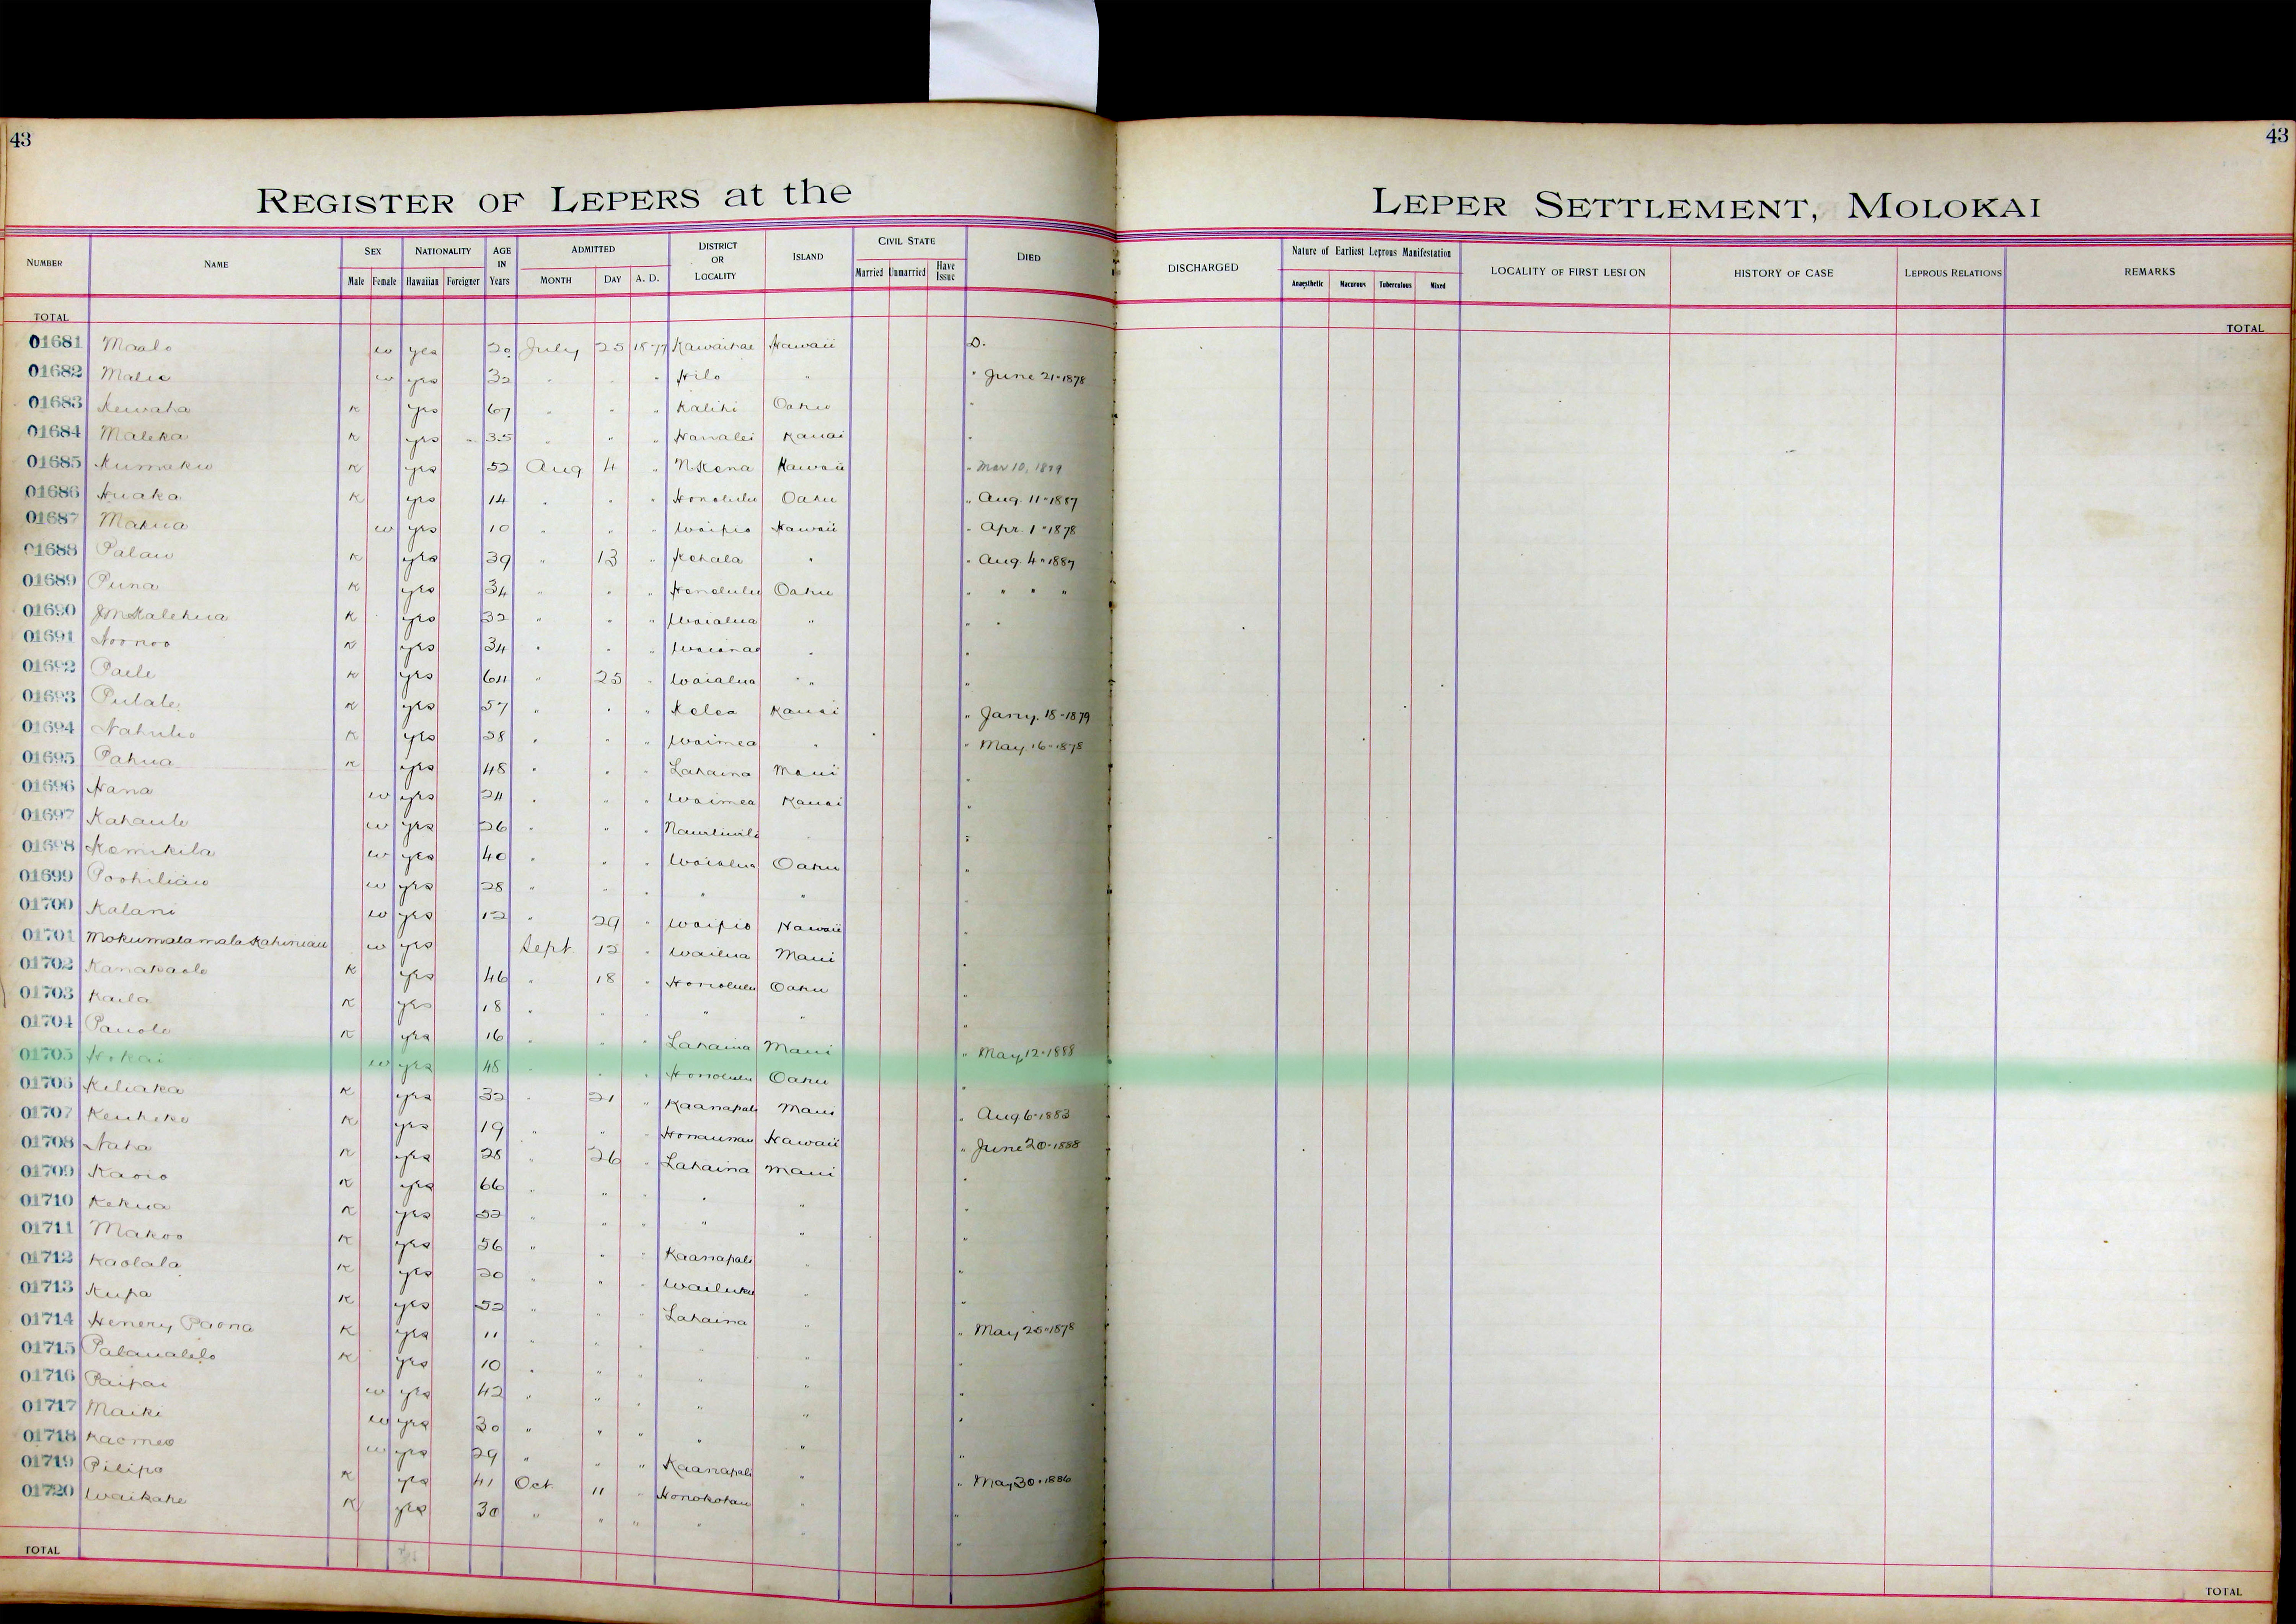 43
43
REGISTER OF LEPERS at the
LEPER SETTLEMENT, MOLOKAI
NUMBER NAME SEX NATIONALITY AGE IN Years ADMITTED DISTRICT OR LOCALITY ISLAND CIVIL STATE DIED
Male Female Hawaiian Foreigner MONTH DAY A. D. Married Unmarried Have Issue
DISCHARGED Nature of Earliest Leprous Manifestation LOCALITY OF FIRST LESION HISTORY OF CASE LEPROUS RELATIONS REMARKS
Anaesthetic Macurous Tuberculous Mixed
TOTAL
TOTAL
01681 Maalo w yes 20 July 25 1877 Kawaihae Hawaii D.
01682 w yes 32 " " " Hilo " " June 21-1878
01683 Kewaha K yes 67 " " " Kalihi Oahu "
01684 Maleka K yes 35 " " " Hanalei Kauai "
01685 Kumaku K yes 52 Aug 4 " N Kona Hawaii " Mar 10, 1879
01686 Huaka K yes 14 " " " Honolulu Oahu " Aug. 11-1887
01687 Mahua w yes 10 " " " Waipio Hawaii " Apr. 1-1878
01688 Palau K yes 39 " 13 " Kohala " " Aug. 4-1887
01689 Puna K yes 34 " " " Honolulu Oahu " " " "
01690 J M Kalehua K yes 32 " " " Waialua " " "
01691 Noonoo K yes 34 " " " Waianae " "
01692 Paele K yes 64 " 25 " Waialua " " "
01693 Pulale K yes 57 " " " Kolea Kauai " Jany. 18-1879
01694 K yes 28 " " " Waimea " " May 16-1878
01695 Pahua K yes 48 " " " Lahaina Maui "
01696 Hana w yes 24 " " " Waimea Kauai "
01697 Kahaule w yes 26 " " " "
01698 Kamikila w yes 40 " " " Waialua Oahu "
01699 Poohiliau w yes 28 " " " " " "
01700 Kalani w yes 12 " 29 " Waipio Hawaii "
01701 Mokumalamala Kahiniau w yes Sept 12 " Wailua Maui "
01702 Kanakaole K yes 46 " 18 " Honolulu Oahu "
01703 Kaila K yes 18 " " " " " "
01704 Pauole K yes 16 " " " Lahaina Maui " May 12-1888
01705 Hokai w yes 48 " " " Honolulu Oahu "
01706 Keliaka K yes 32 " 21 " Kaanapali Maui " Aug 6-1883
01707 Keuheke K yes 19 " " " Honaunau Hawaii " June 20-1888
01708 Naha K yes 28 " 26 " Lahaina Maui "
01709 Kaoio K yes 66 " " " " " "
01710 Kekua K yes 52 " " " " " "
01711 Makoo K yes 56 " " " Kaanapali " "
01712 Kaolala K yes 20 " " " Wailuku " "
01713 Kupa K yes 52 " " " Lahaina " "
01714 Henery Paona K yes 11 " " " " " " May 25-1878
01715 Palaualelo K yes 10 " " " " " "
01716 Paipai w yes 42 " " " " " "
01717 Maiki w yes 30 " " " " " "
01718 Kaomeo w yes 29 " " " Kaanapali " "
01719 Pilipo K yes 41 Oct 11 " Honokohau " " May 30-1886
01720 Waikahe K yes 30 " " " " " "
TOTAL
TOTAL